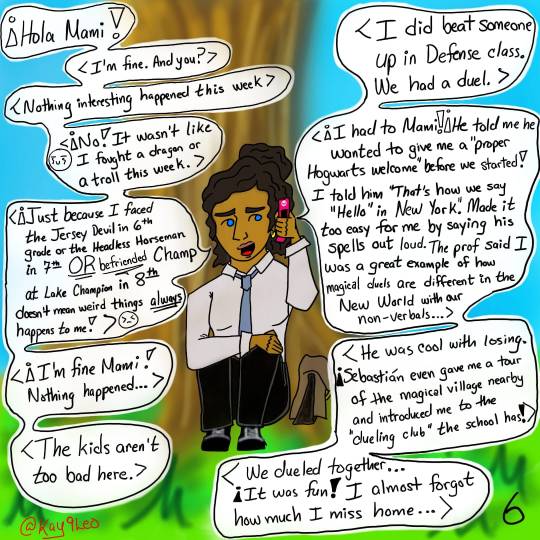 ¡Hola Mami!
<I'm fine. And you?>
<Nothing interesting happened this week>
<¡No! It wasn't like
I fought a dragon or
a troll this week.>
<¡Just because I faced
the Jersey Devil in 6th
grade or the Headless Horseman
in 7th OR befriended Champ
at Lake Champion in 8th
doesn't mean weird things always
happens to me!>
<¡I'm fine Mami!
Nothing happened...>
<The kids aren't
too bad here.>
<I did beat someone
up in Defense class.
We had a duel.>
<¡I had to Mami!¡He told me he
wanted to give me a "proper
Hogwarts welcome" before we started!
I told him "That's how we say
"Hello" in New York." Made it
too easy for me by saying his
spells out loud. The prof said I
was a great example of how
magical duels are different in the
New World with our
non-verbals...>
<He was cool with losing.
¡Sebastián even gave me a tour
of the magical village nearby
and introduced me to the
"dueling club" the school has!>
<We dueled together...
¡It was fun! I almost forgot
how much I miss home...>
@Kay9Leo
6